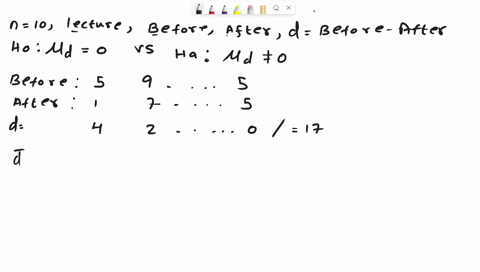 n=10, lecture, Before, After, d= Before-After
Ho: Md = 0 vs Ha: Md ≠ 0
Before: 5 9 . ... 5
After: 1 7 - .... 5
d= 4 2 ...... 0 / = 17
d̄